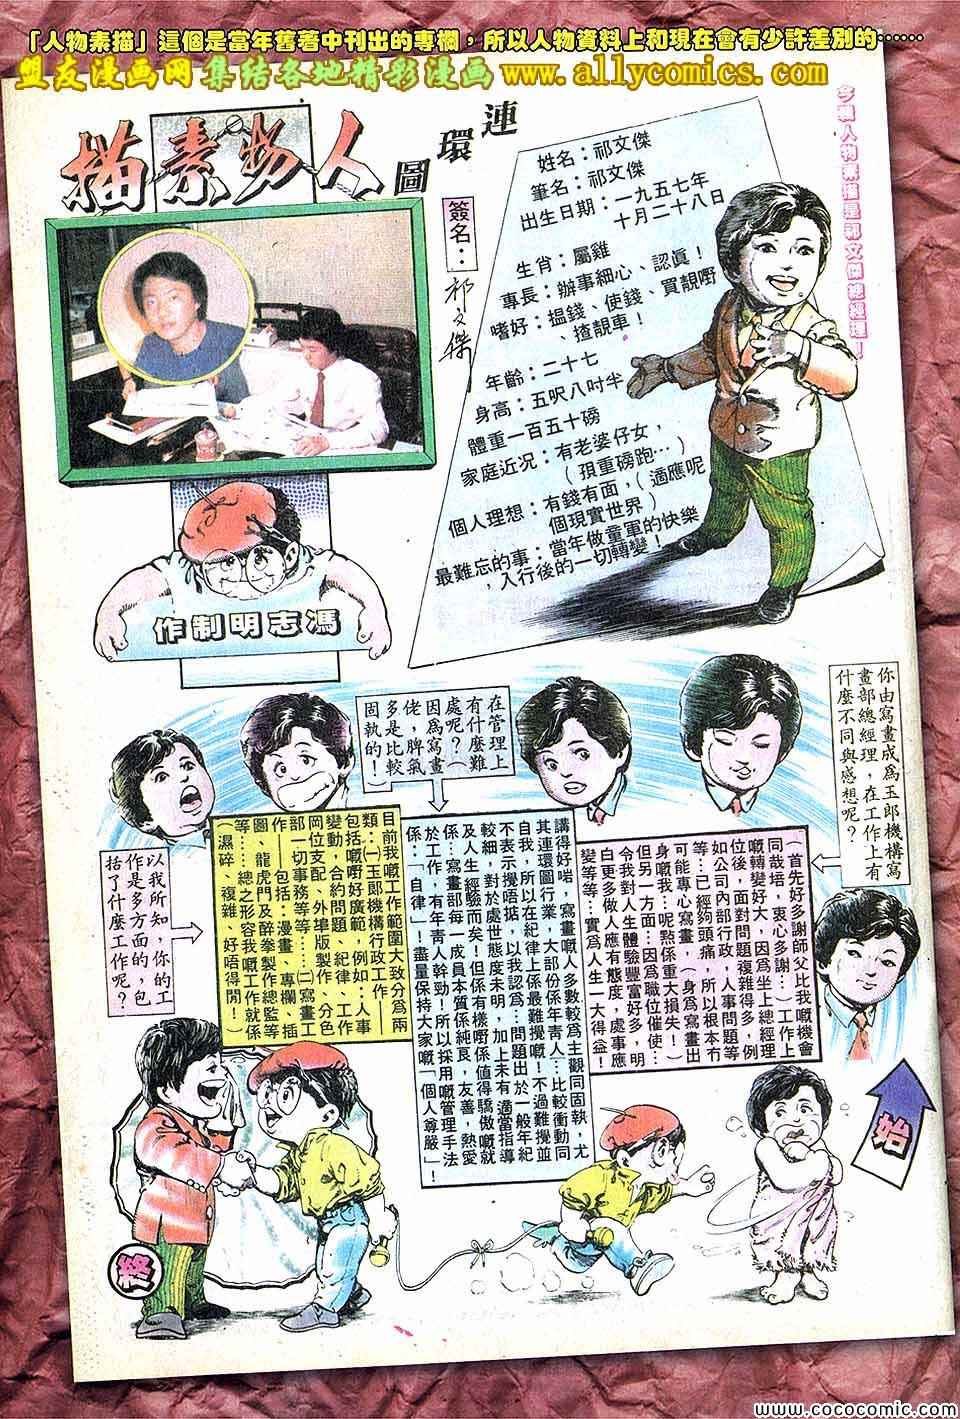 「人物素描」這個是當年舊著中刊出的專欄，所以人物資料上和現在會有少許差別的⋯⋯
盟友漫画网 集结各地精彩漫画 www.allycomics.com
連環圖
人物素描
今輯人物素描是祁文傑總經理！
簽名：
祁文傑
姓名：祁文傑
筆名：祁文傑
出生日期：一九五七年
十月二十八日
生肖：屬雞
專長：辦事細心、認眞！
嗜好：搵錢、使錢、買靚嘢
、揸靚車！
年齡：二十七
身高：五呎八吋半
體重一百五十磅
家庭近況：有老婆仔女，
（孭重磅跑⋯）
個人理想：有錢有面，（適應呢
個現實世界）
最難忘的事：當年做童軍的快樂
，入行後的一切轉變！
馮志明制作
始
你由寫畫成爲玉郎機構寫
畫部總經理，在工作上有
什麼不同與感想呢？
（首先好多謝師父比我嘅機會
同哉培，衷心多謝⋯）工作上
嘅轉變好大，因爲坐上總經理
位後，面對問題複雜得多，例
如公司內部行政，人事問題等
等⋯已經夠頭痛，所以根本冇
可能專心寫畫，（身爲寫畫出
身嘅我⋯呢熟係重大損失！）
但另一方面⋯因爲職位催使⋯
令我對人生體驗豐富好多，明
白更多做人應有態度，處事應
變等等⋯實爲人生一大得益！
在管理上
有什麼難
處呢？（
因爲寫畫
佬，脾氣
多是比較
固執的！
講得好啱，寫畫嘅人多數較爲主觀同固執，尤
其連環圖行業，大部份係年靑人⋯比較衝動同
自我，所以在紀律上係最難攪嘅！不過難攪並
不表示攪唔掂，以我認爲⋯問題出於一般年紀
較細，對於處世態度未明，加上未有適當指導
及人生經驗而矣！但係有樣嘢係值得驕傲嘅就
係⋯寫畫部每一成員本質係純良，友善，熱愛
於工作，有年靑人幹勁！所以採用嘅管理手法
係：「自律」——盡量保持大家嘅「個人尊嚴」！
以我所知，你的工
作是多方面的，包
括了什麼工作呢？
目前我嘅工作範圍大致分爲兩
類：㈠玉郎機構行政工作——
包括嘅嘢好廣範，例如：人事
變動，合約問題、紀律、工作
岡位支配、外埠版製作、分色
部一切事務等等⋯⋯㈡寫畫工
作——包括：漫畫、專欄、插
圖、龍虎門及醉拳製作總監等
等⋯⋯總之形容我嘅工作就係
（濕碎、複雜、好唔得閒！）
終
www.cococomic.com